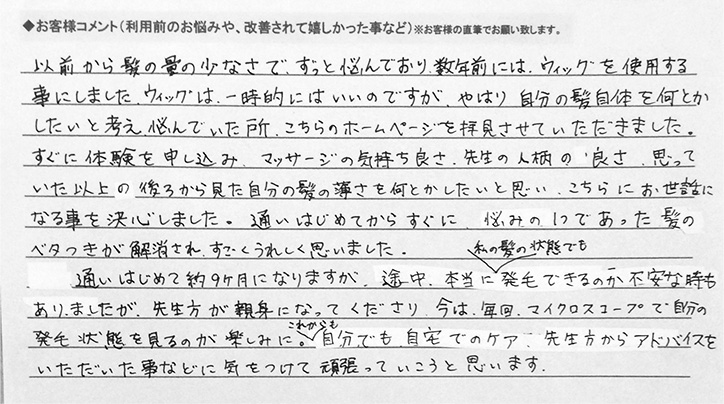 ◆お客様コメント（利用前のお悩みや、改善されて嬉しかった事など）※お客様の直筆でお願い致します。
以前から髪の量の少なさで、ずっと悩んでおり、数年前には、ウィッグを使用する
事にしました。ウィッグは、一時的にはいいのですが、やはり自分の髪自体を何とか
したいと考え、悩んでいた所、こちらのホームページを拝見させていただきました。
すぐに体験を申し込み、マッサージの気持ち良さ、先生の人柄の良さ、思って
いた以上の後ろから見た自分の髪の薄さを何とかしたいと思い、こちらにお世話に
なる事を決心しました。通いはじめてからすぐに、悩みの1つであった髪の
ベタつきが解消され、すごくうれしく思いました。
私の髪の状態でも
通いはじめて約9ヶ月になりますが、途中、本当に発毛できるのか不安な時も
ありましたが、先生方が親身になってくださり、今は、毎回、マイクロスコープで自分の
これからも
発毛状態を見るのが楽しみに。自分でも自宅でのケア、先生方からアドバイスを
いただいた事などに気をつけて頑張っていこうと思います。